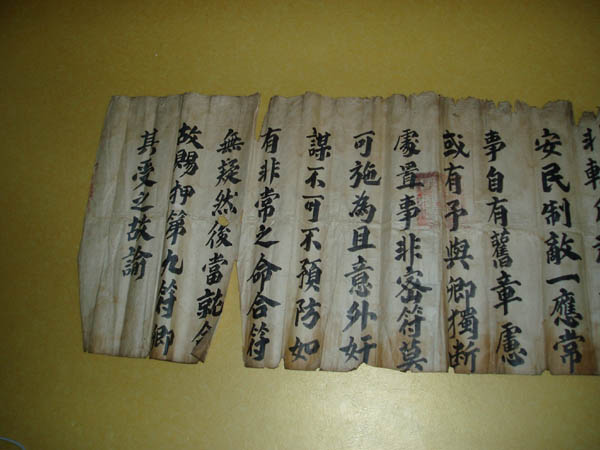 安民制敵一應常
事自有舊章慮
或有予與卿獨斷
處置事非密符莫
可施為且意外奸
謀不可不預防如
有非常之命合符
無疑然後當就
故賜押第九符卿
其受之故諭